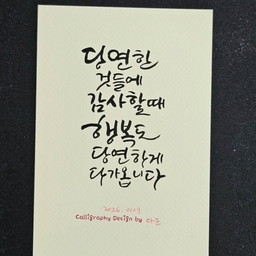 당연한
것들에
감사할때
행복도
당연하게
다가옵니다
Calligraphy Design by